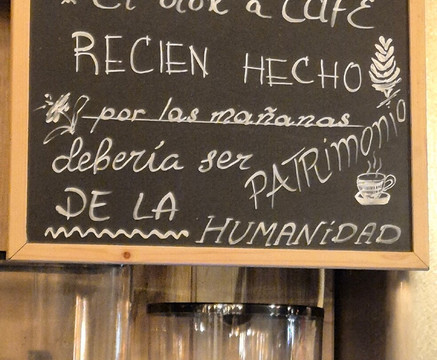 El olor a CAFÉ
RECIEN HECHO
por las mañanas
debería ser
PATRimonio
DE LA
HUMANiDAD